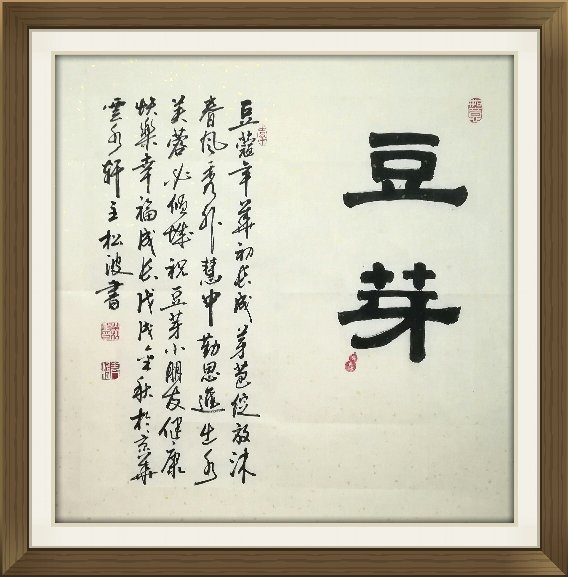 豆芽
豆蔻年華初長成芽苞绽放沐
春風秀外慧中勤思進出水
芙蓉必傾城祝豆芽小朋友健康
快樂幸福成长戊戌金秋於京華
雲水軒主松波書